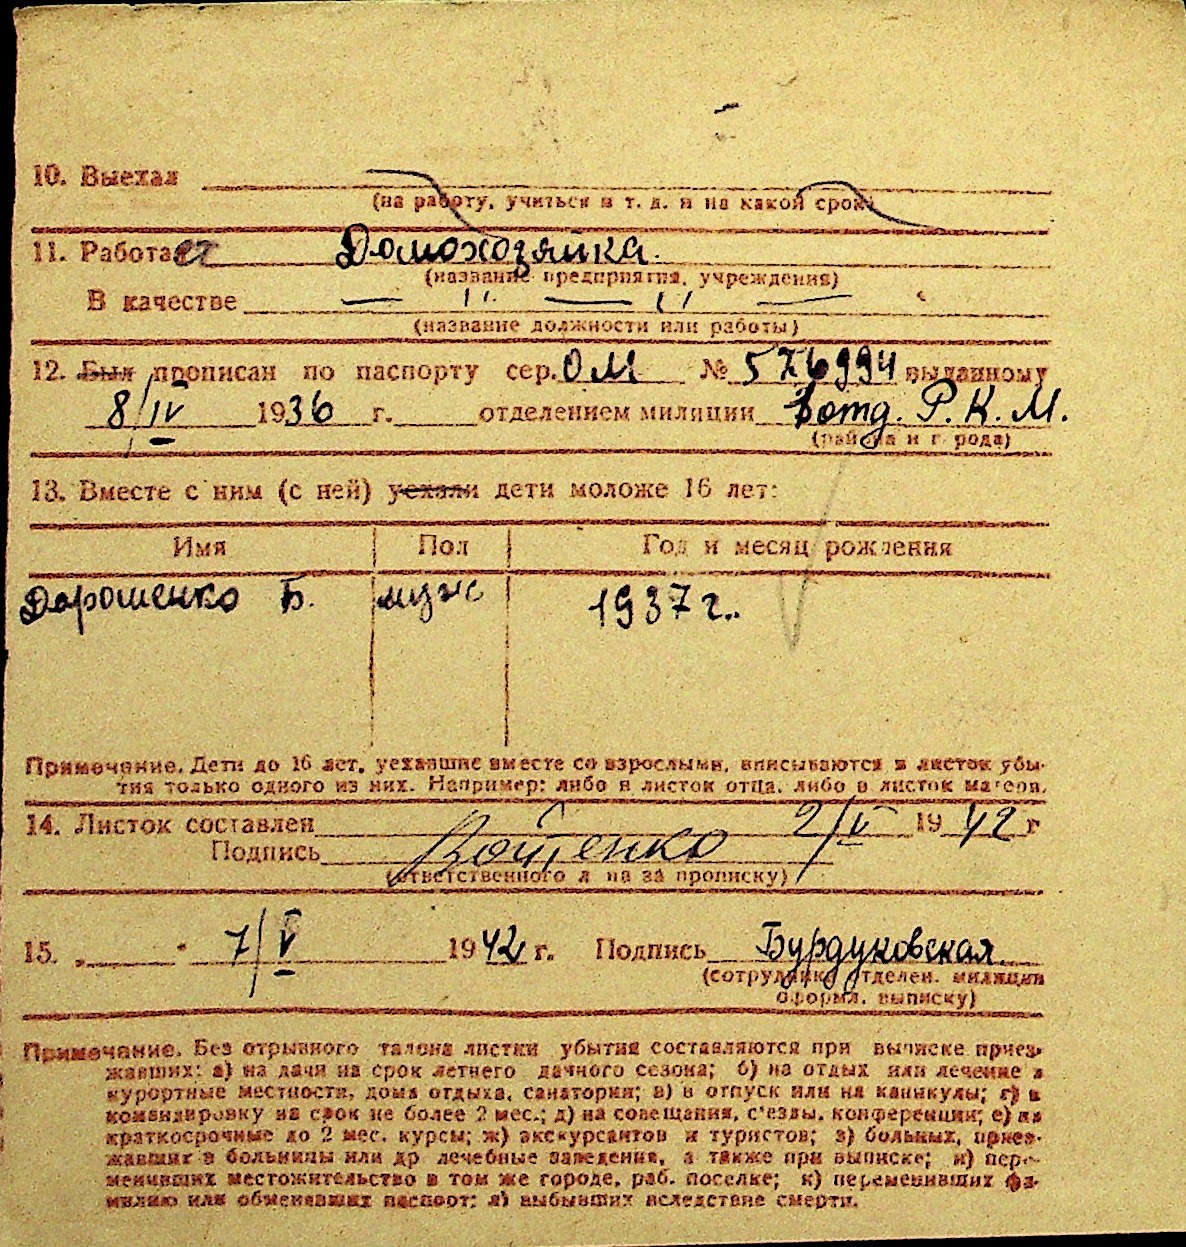 10. Выехал
(на работу, учиться и т. д. и на какой срок)
11. Работает Домохозяйка.
(название предприятия, учреждения)
В качестве — " — " —
(название должности или работы)
12. Был прописан по паспорту сер. ОМ № 576994 выданному
8/IV 1936 г. отделением милиции 1 отд. Р. К. М.
(района и города)
13. Вместе с ним (с ней) уехали дети моложе 16 лет:
Имя Пол Год и месяц рождения
Дорошенко Б. муж 1937 г.
Примечание. Дети до 16 лет, уехавшие вместе со взрослыми, вписываются в листок убы-
тия только одного из них. Например: либо в листок отца, либо в листок матери.
14. Листок составлен 2/V 1942 г
Подпись Войтенко
(ответственного лица за прописку)
15. „ " 7/V 1942 г. Подпись Бурдуковская.
(сотрудника отделен. милиции
оформл. выписку)
Примечание. Без отрывного талона листки убытия составляются при выписке приез-
жавших: а) на дачи на срок летнего дачного сезона; б) на отдых или лечение в
курортные местности, дома отдыха, санатории; в) в отпуск или на каникулы; г) в
командировку на срок не более 2 мес.; д) на совещания, с'езды, конференции; е) на
краткосрочные до 2 мес. курсы; ж) экскурсантов и туристов; з) больных, приез-
жавших в больницы или др лечебные заведения, а также при выписке; и) пере-
менивших местожительство в том же городе, раб. поселке; к) переменивших фа-
милию или обменявших паспорт; л) выбывших вследствие смерти.